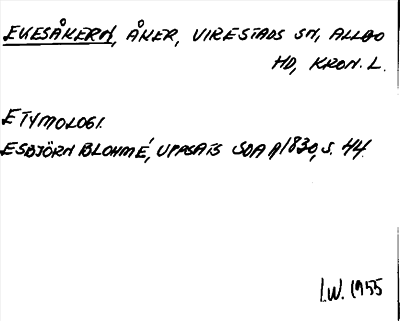 EKESÅKERN, ÅKER, VIRESTADS SN, ALLBO
HD, KRON. L.
ETYMOLOGI.
ESBJÖRN BLOHMÉ, UPPSATS SOAA 1830, S. 44.
I.W. 1955